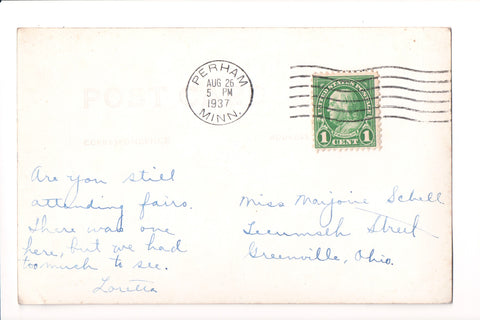 PERHAM
AUG 26
5 PM
1937
MINN.
UNITED STATES POSTAGE
1 CENT 1
POST
CORRESPONDENCE
Are you still
attending fairs.
There was one
here, but we had
too much to see.
Loretta
Miss Marjorie Schell
Tecumseh Street
Greenville, Ohio.